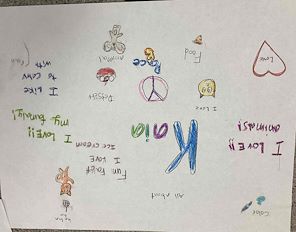 Color
All about
Kaia
Fun Fact
I LOVE
ice cream
I LOVE!!
animals!
I LOVE!!
my family!
I Love
Peace
I like
to
with
Food
Love